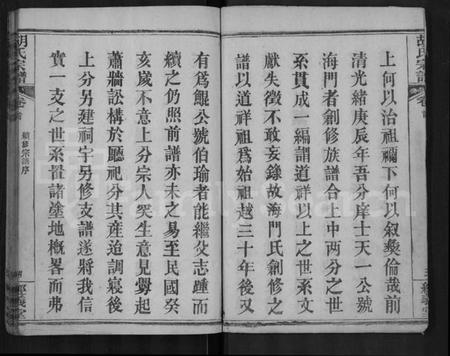 上何以治祖禰下何以叙彜倫哉前
清光緒庚辰年吾分庠士天一公號
海門者創修族譜合上中兩分之世
系貫成一編謂道祥以上之世系文
獻失徵不敢妄錄故海門氏創修之
譜以道祥祖爲始祖越三十年後又
有爲鯤公號伯瑜者能繼父志踵而
續之仍照前譜亦未之易至民國癸
亥歲不意上分宗人哭生意見釁起
蕭牆訟構於廳祀分其產迨調寢後
上分另建祠宇另修支譜遂將我信
實一支之世系置諸塗地概畧而弗
胡氏宗譜
卷首
續修宗譜序